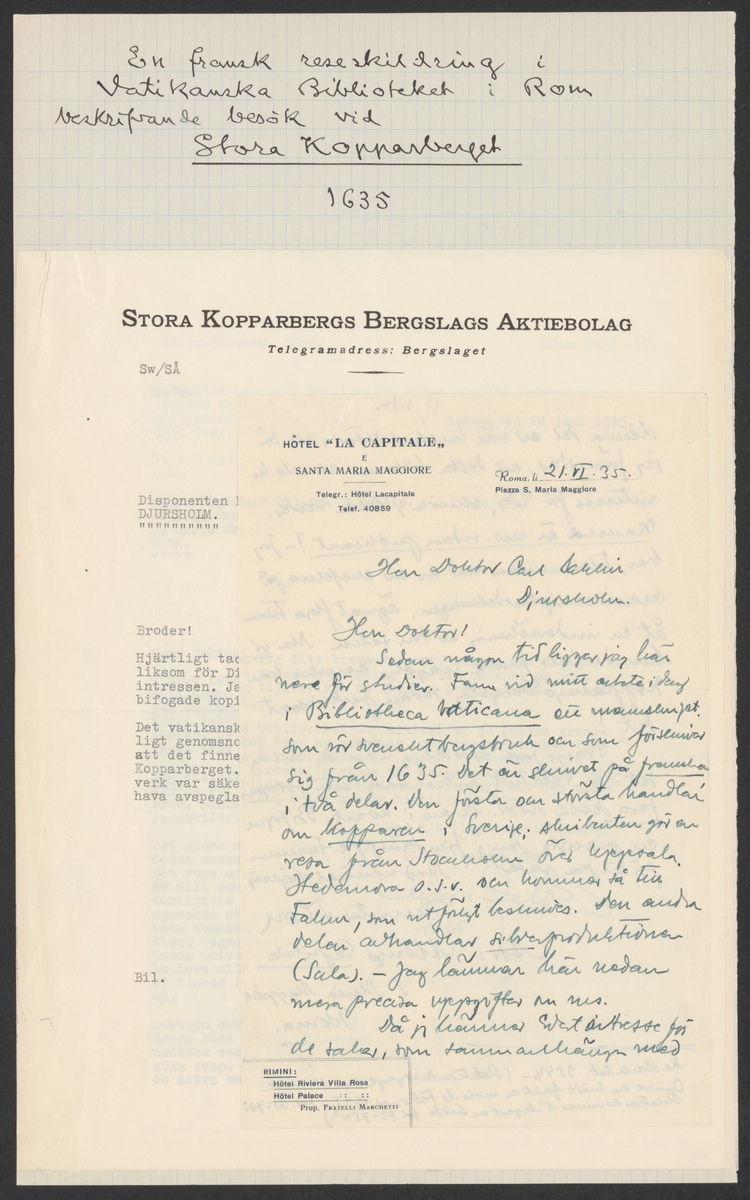 En fransk reseskildring i
Vatikanska Biblioteket i Rom
beskrifvande besök vid
Stora Kopparberget
1635
STORA KOPPARBERGS BERGSLAGS AKTIEBOLAG
Telegramadress: Bergslaget
Sw/SÅ
Disponenten
DJURSHOLM.
"""""""""""
Broder!
Hjärtligt tac
liksom för Di
intressen. Ja
bifogade kopi
Det vatikansk
ligt genomsno
att det finne
Kopparberget.
verk var säke
hava avspegla
Bil.
HÔTEL "LA CAPITALE„
E
SANTA MARIA MAGGIORE
Telegr.: Hôtel Lacapitale
Telef. 40859
Roma, li 21.VI.35.
Piazza S. Maria Maggiore
Herr Doktor Carl Sahlin
Djursholm.
Herr Doktor!
Sedan någon tid ligger jag här
nere för studier. Fann vid mitt arbete i dag
i Bibliotheca Vaticana ett manuskript,
som rör svenskt bergsbruk och som förskriver
sig från 1635. Det är skrivet på franska
i två delar. Den första och största handlar
om kopparen i Sverige; skribenten gör en
resa från Stockholm över Uppsala,
Hedemora o.s.v. och kommer så till
Falun, som utförligt beskrives. Den andra
delen avhandlar silverproduktionen
(Sala). – Jag lämnar här nedan
mera precisa uppgifter om ms.
Då jag känner Edert intresse för
de saker, som sammanhänga med
RIMINI:
Hôtel Riviera Villa Rosa
Hôtel Palace :: ::
Prop. FRATELLI MARCHETTI